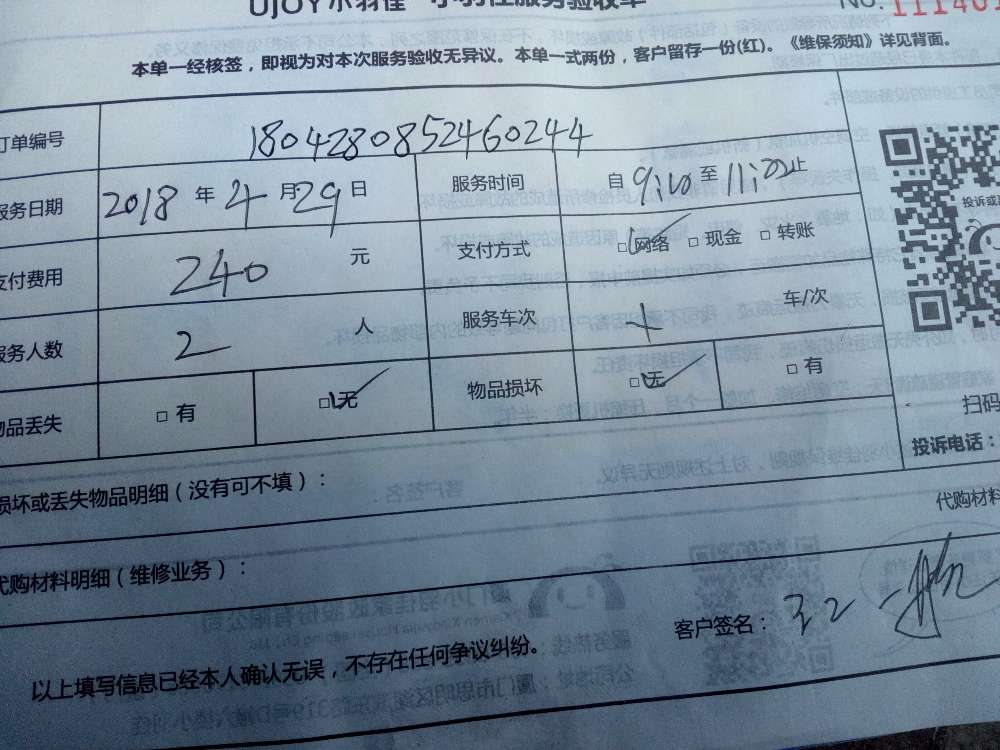 UJOY小羽佳 小羽佳服务验收单
NO. 111401
本单一经核签，即视为对本次服务验收无异议。本单一式两份，客户留存一份(红)。《维保须知》详见背面。
订单编号 1804280852460244
服务日期 2018 年 4 月 29 日 服务时间 自 至 止
支付费用 240 元 支付方式 □网络 □现金 □转账
服务人数 2 人 服务车次 车/次
物品丢失 □有 □无 物品损坏 □无 □有
扫码
投诉电话：
损坏或丢失物品明细（没有可不填）：
代购材料
代购材料明细（维修业务）：
客户签名：
以上填写信息已经本人确认无误，不存在任何争议纠纷。